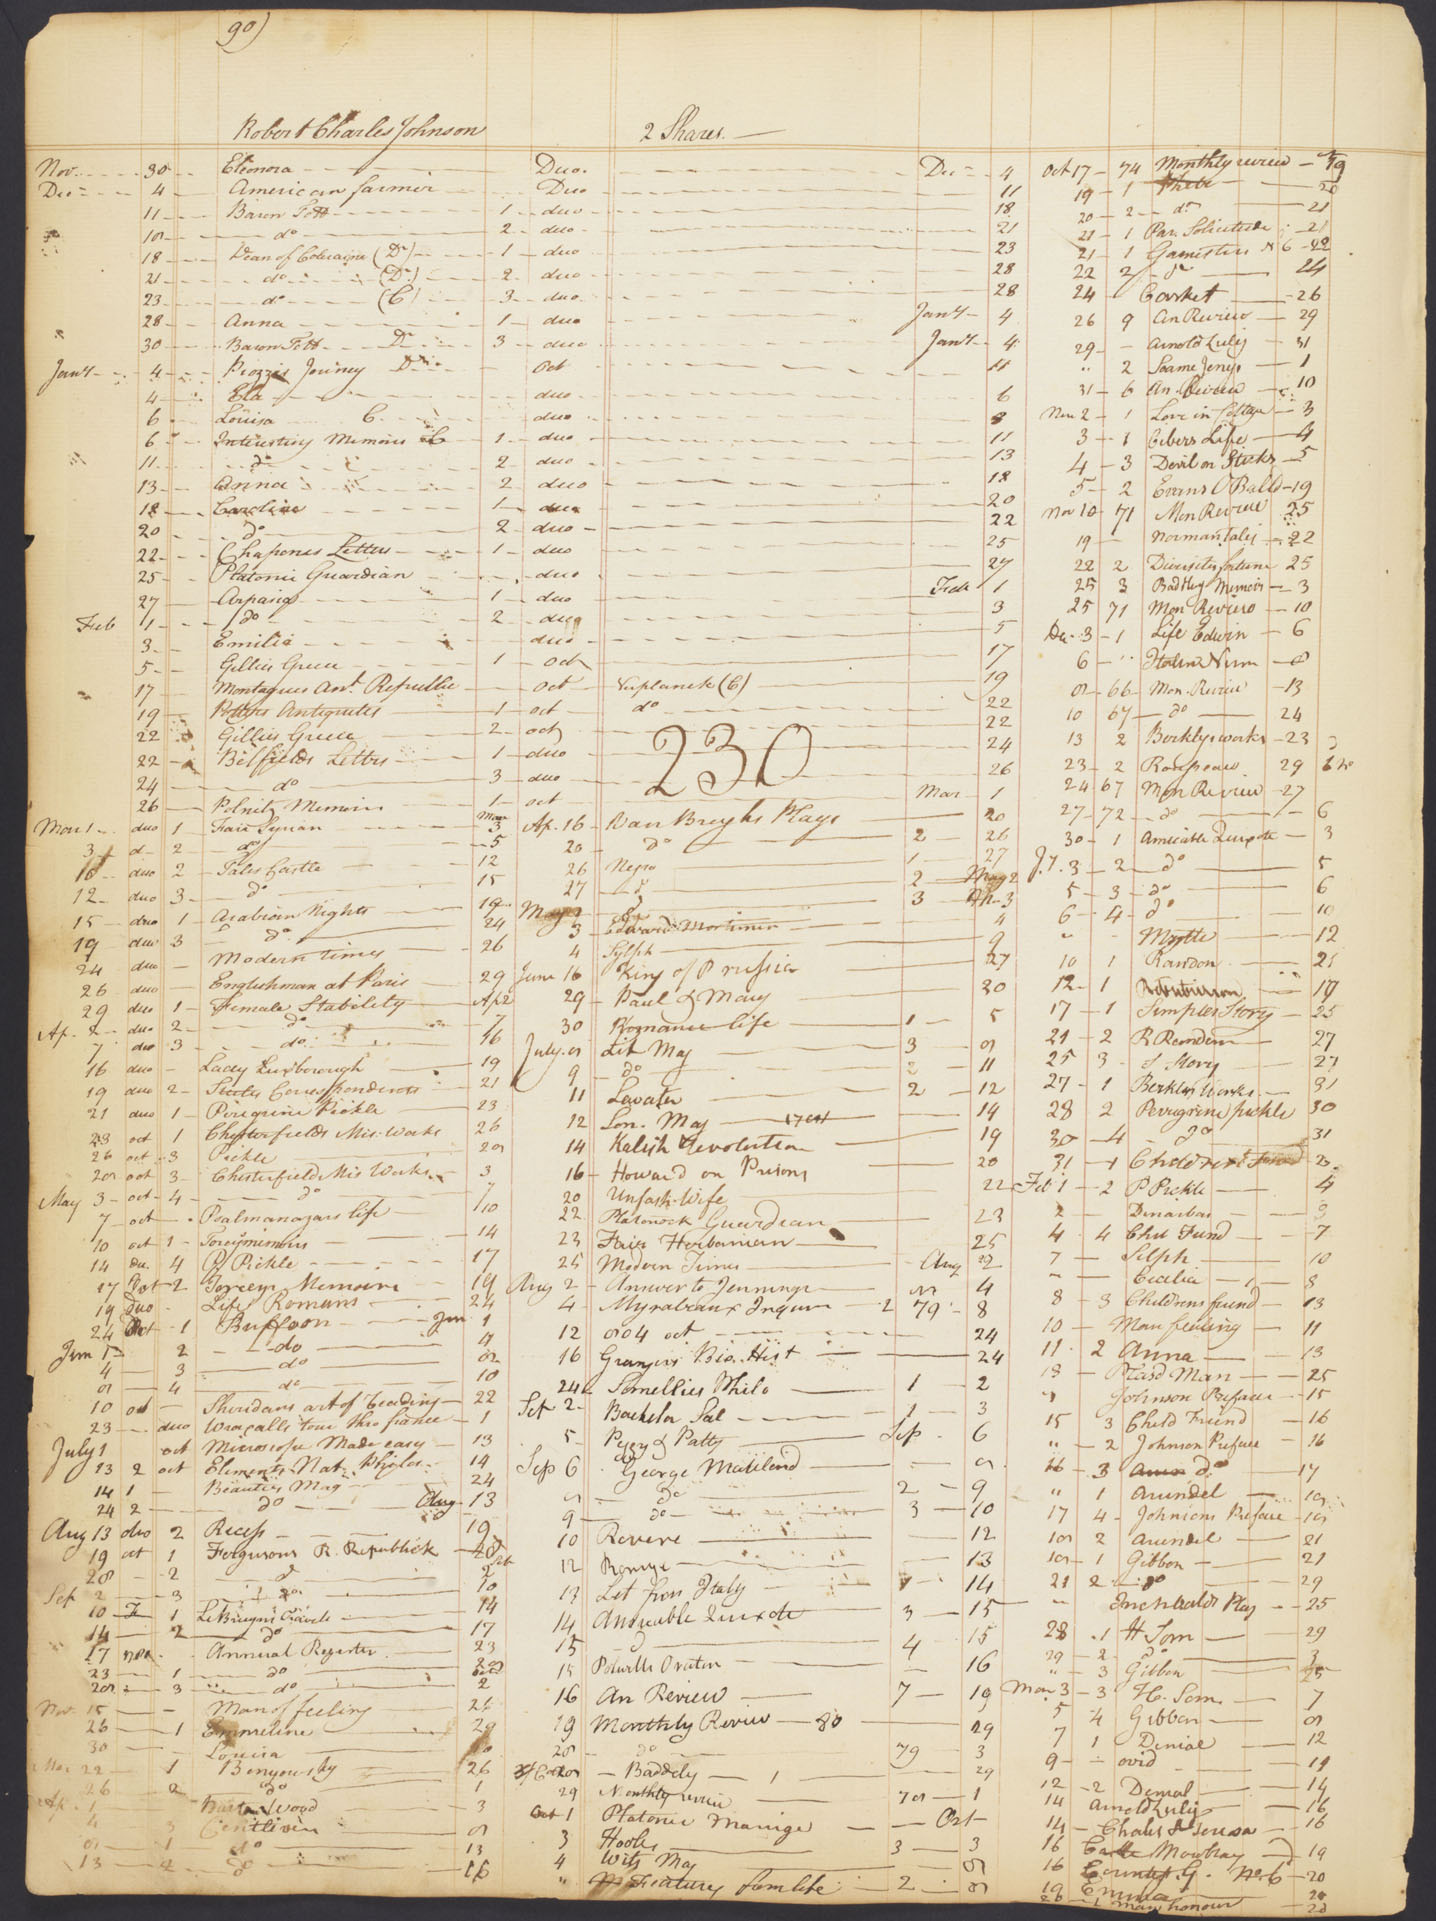 90)
Robert Charles Johnson 2 Shares.
Nov. 30 Eleonora Duo. Dec 4
Dec 4 American farmer Duo 11
11 Baron Tott 1 duo 18
do 2 duo 21
18 Dean of Coleraine (D) 1 duo 23
21 do (D) 2 duo 28
23 do (C) 3 duo 28
28 Anna 1 duo Jany 4
30 Baron Tott D 3 duo Jany 4
Jany 4 Piozzis Jouney Do Oct 11
4 Ela duo 6
6 Louisa C duo 8
6 Interesting Memoirs C 1 duo 11
11 do 2 duo 13
13 Anna 2 duo 18
18 Caroline 1 duo 20
20 do 2 duo 22
22 Chapones Letters 1 duo 25
25 Platonic Guardian duo 27
27 Arpasia 1 duo Feb 1
Feb 1 do 2 duo 3
3 Emilia duo 5
5 Gillies Greece 1 oct 17
17 Montagues Ant. Republic oct Verplanck (C) 19
19 Potters Antiquities 1 oct do 22
22 Gillies Greece 2 oct 22
22 Bilfields Letters 1 duo 24
24 do 3 duo 26
26 Polnitz Memoirs 1 oct Mar 1
230
Mar 1 duo 1 Fair Syrian Mar 3
3 d 2 do 5
duo 2 Tales Castle 12
12 duo 3 do 15
15 duo 1 Arabian Nights 19
19 duo 3 do 24
24 duo Modern times 26
26 duo Englishman at Paris 29
29 duo 1 Female Stability Ap 2
Ap. 2 duo 2 do 7
7 duo 3 do 16
16 duo Lady Luxborough 19
19 duo 2 Correspondents 21
21 duo 1 Peregrine Pickle 23
23 oct 1 Chesterfields Mis. Works 26
26 oct 3 Pickle 28
28 oct 3 Chesterfield Mis Works 3
May 3 oct 4 do 7
7 oct Psalmanazars life 10
10 oct 1 14
14 duo 4 P Pickle 17
17 Oct 2 Foreign Memoirs 19
19 Duo Life Romans 24
24 Oct 1 Buffoon Jun 1
Jun 1 2 do 4
4 3 do 8
8 4 do 10
10 oct Sheridans art of Reading 22
23 duo Wraxalls tour thro france 1
July 1 oct Microscope Made easy 13
13 2 oct Elements Nat. Philos. 14
14 1 Beauties Mag 24
24 2 do Aug 13
Aug 13 duo 2 Recess 19
19 oct 1 Fergusons R. Republick 28
28 2 d 2
Sep 2 3 do 10
10 1 Le Bruyns Travels 14
14 2 do 17
17 Annual Register 23
23 1 do 28
28 3 do 2
Nov. 15 Man of feeling 26
26 1 Emmeline 29
30 Louisa
22 1 Benyousky 26
26 2 do 1
Ap. 1 Wood 3
4 3 Centlivre 8
8 1 do 13
13 2 do 16
Ap. 16 Van Breughs Plays 20
20 do 2 26
26 Negro 1 27
27 d 2 May 2
May 2 d 3
3 Edward Mortimer 4
4 Sylph 9
June 16 King of Prussia 27
29 Paul & Mary 30
30 Romance life 1 5
July 8 Lit Mag 3 8
9 do 2 11
11 Lavater 2 12
12 Lon. Mag 14
14 Kelish Revolution 19
16 Howard on Prisons 20
20 Unfash. Wife 22
22 Platonick Guardian 23
23 Fair Hiberniean 25
25 Modern Times Aug 2
Aug 2 Answer to Jennings 4
4 Myrabeaux 2 79 8
12 oct 24
16 Grangers Bio. Hist 24
24 Smellies Philo 1 2
Sep 2 Bachelor Sal 1 3
5 Peggy & Patty Sep 6
Sep 6 George Mateland 8
8 do 2 9
9 do 3 10
10 Revere 12
12 13
13 Let from Italy 14
14 Amicable Quixote 3 15
15 d 4 15
15 Powells Oration 16
16 An Review 7 19
19 Monthly Review 80 29
28 do 79 3
28 Baddely 1 29
29 Monthly review 78 1
Oct 1 Platonic Marriage Oct
3 Hooles 3 3
4 Wits Mag 8
" Featury fam life 2 8
Oct 17 74 Monthly review 19
19 1 Phebe 20
20 2 do 21
21 1 Par. Solicitude 21
21 1 Gamesters N 6 22
22 2 do 24
24 Casket 26
26 9 An Review 29
29 Arnold Zulig 31
" 2 Soame Jenys 1
31 6 An. Review 10
Nov 2 1 Love in Cottage 3
3 1 Cibers Life 4
4 3 Devil on Sticks 5
5 2 Evans O Balld 19
Nov 10 71 Mon Review 25
19 Norman tales 22
22 2 Diversity fortune 25
25 3 Baddley Memoir 3
25 71 Mon Review 10
De. 3 1 Life Edwin 6
6 8
8 66 Mon. Review 13
10 67 do 24
13 2 Berklys works 23
23 2 Rousseau 29
24 67 Mon Review 27
27 72 do 6
30 1 Amicable Quixote 3
3 2 do 5
5 3 do 6
6 4 do 10
Myrtle 12
10 1 Rawdon 21
12 1 17
17 1 Simples Story 25
21 2 R Random 27
25 3 S Story 27
27 1 Berkleys Works 31
28 2 Peregrine pickle 30
30 4 do 31
31 1 Childrens friend 2
Feb 1 2 P Pickle 4
2 3
4 4 Chil Friend 7
7 Silph 10
" Cecilia 1 8
8 3 Childrens friend 13
10 Man feeling 11
11 2 Anna 13
13 Man 25
" Johnson Preface 15
15 3 Child Friend 16
" 2 Johnson Preface 16
16 3 do 17
" 1 Arundel 18
17 4 Johnsons Preface 18
18 2 Arundel 21
18 1 Gibbon 21
21 2 do 29
" Inchbalds Play 25
28 1 H Tom 29
29 2 do 3
" 3 Gibbon
Mar 3 3 H. Tom 7
5 4 Gibbon 8
7 1 Denial 12
9 ovid 14
12 2 Denial 14
14 Arnold Zulig 16
14 Charles & Teresa 16
16 Mowbray 19
16 Countess G. No. 6 20
19 Emma 20
1 Man honour